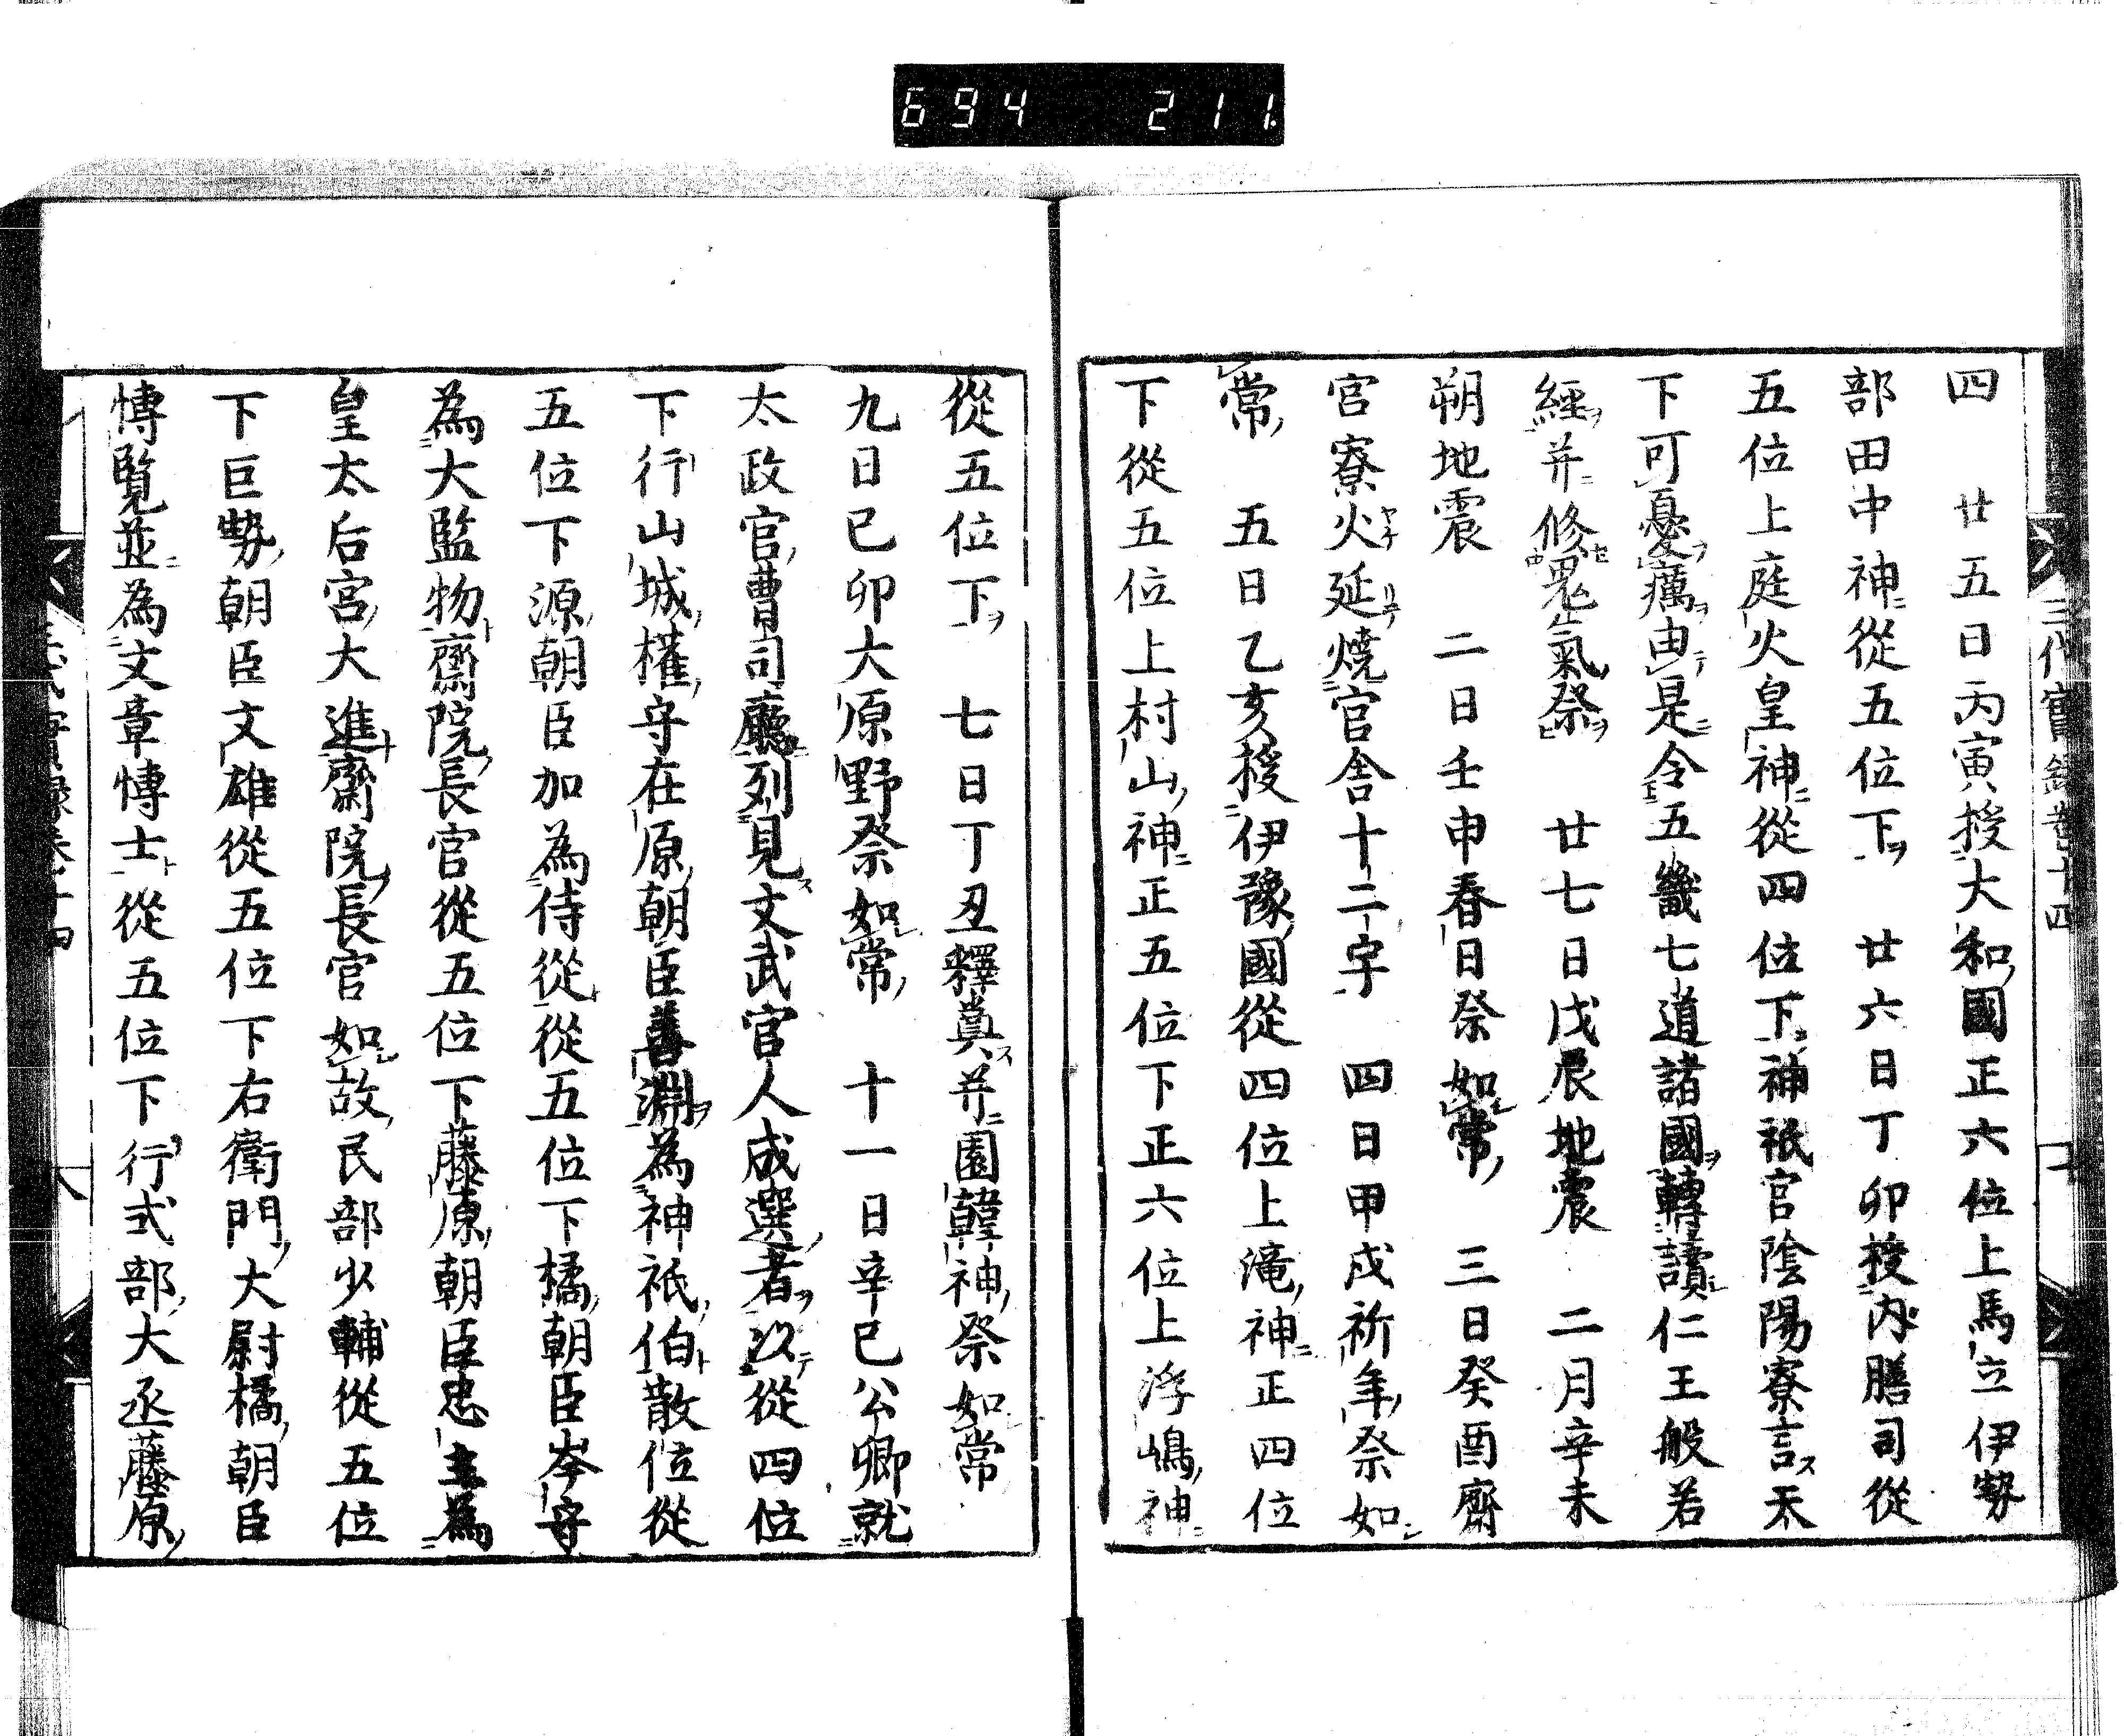 694 211
四　廿五日丙寅授大和國正六位上馬立伊勢
部田中神從五位下　廿六日丁卯授內膳司從
五位上庭火皇神從四位下神祇官陰陽寮言天
下可憂癘由是令五畿七道諸國轉讀仁王般若
經并修鬼氣祭　廿七日戊辰地震　二月辛未
朔地震　二日壬申春日祭如常　三日癸酉齋
宮寮火延燒官舍十二宇　四日甲戌祈年祭如
常　五日乙亥授伊豫國從四位上滝神正四位
下從五位上村山神正五位下正六位上浮嶋神
從五位下　七日丁丑釋奠并園韓神祭如常
九日已卯大原野祭如常　十一日辛巳公卿就
太政官曹司廳列見文武官人成選者以從四位
下行山城權守在原朝臣善淵為神祇伯散位從
五位下源朝臣加為侍從從五位下橘朝臣岑守
為大監物齋院長官從五位下藤原朝臣忠主為
皇太后宮大進齋院長官如故民部少輔從五位
下巨勢朝臣文雄從五位下右衛門大尉橘朝臣
博覽並為文章博士從五位下行式部大丞藤原
三代實錄卷十四